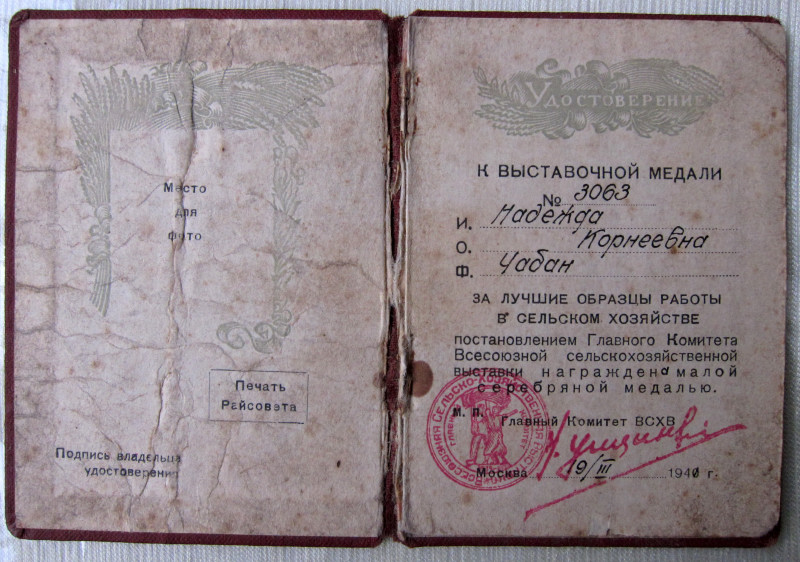 Место
для
фото
Печать
Райсовета
Подпись владельца
удостоверения
Удостоверение
К ВЫСТАВОЧНОЙ МЕДАЛИ
№ 3063
И. Надежда
О. Корнеевна
Ф. Чабан
ЗА ЛУЧШИЕ ОБРАЗЦЫ РАБОТЫ
В СЕЛЬСКОМ ХОЗЯЙСТВЕ
постановлением Главного Комитета
Всесоюзной сельскохозяйственной
выставки награжденa малой
серебряной медалью.
М. П. Главный Комитет ВСХВ
Москва 19/III 1940 г.
ВСЕСОЮЗНАЯ СЕЛЬСКО-ХОЗЯЙСТВЕННАЯ